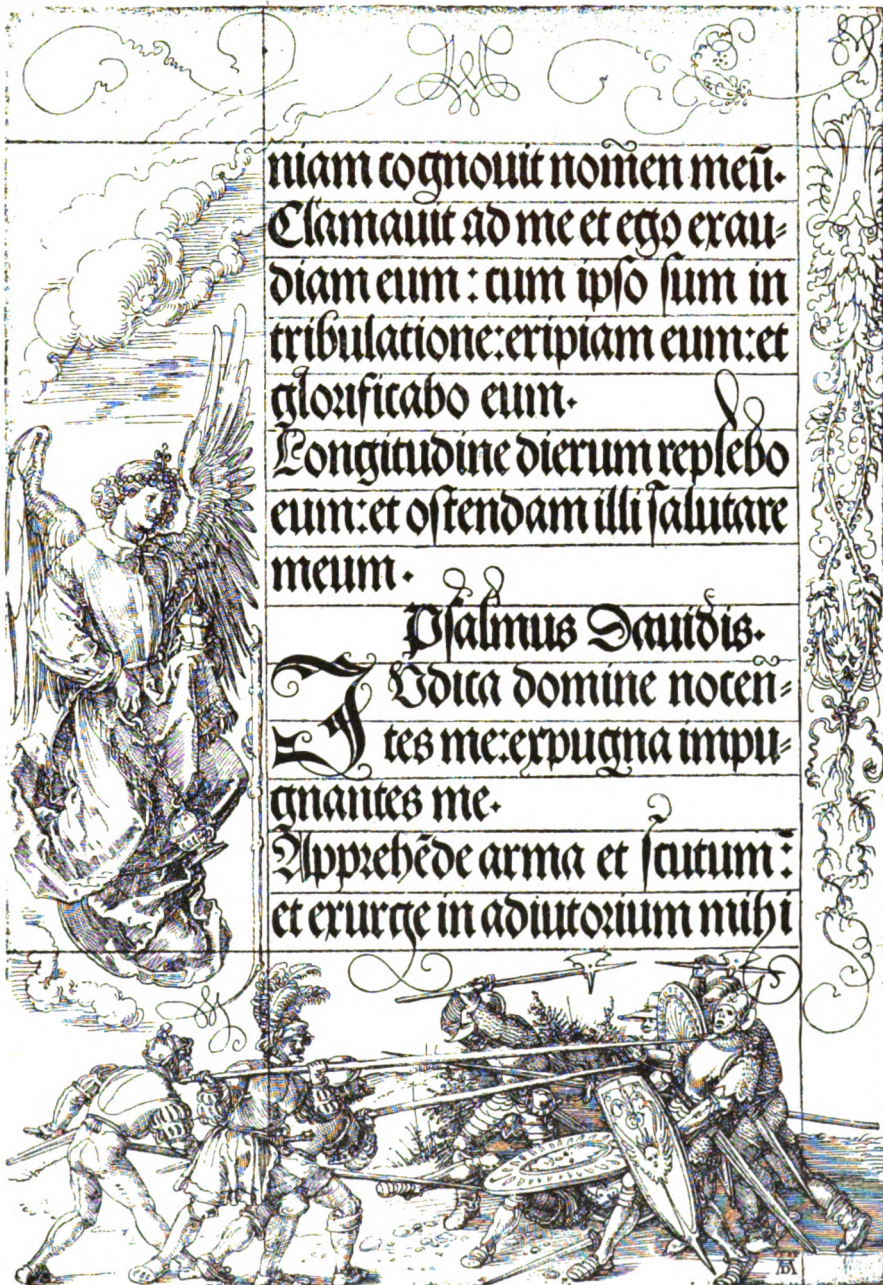 niam cognouit nom̄en meū.
Clamauit ad me et ego exau⸗
diam eum : cum ipſo ſum in
tribulatione: eripiam eum: et
glorificabo eum.
Longitudine dierum replebo
eum: et oſtendam illi ſalutare
meum.
Pſalmus Dauidis.
IVdica domine nocen̄⸗
tes me: expugna impu⸗
gnantes me.
Apprehēde arma et ſcutum :
et exurge in adiutorium mihi
AD